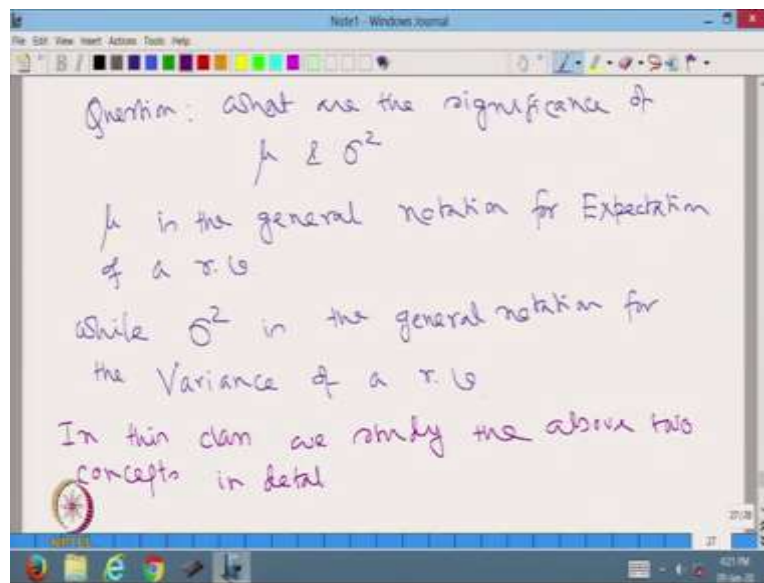 Note1 - Windows Journal
File Edit View Insert Actions Tools Help
Question: What are the significance of
μ & σ²
μ is the general notation for Expectation
of a r.v
While σ² is the general notation for
the Variance of a r.v
In this class we study the above two
concepts in detal
27/28
27
4:21 PM